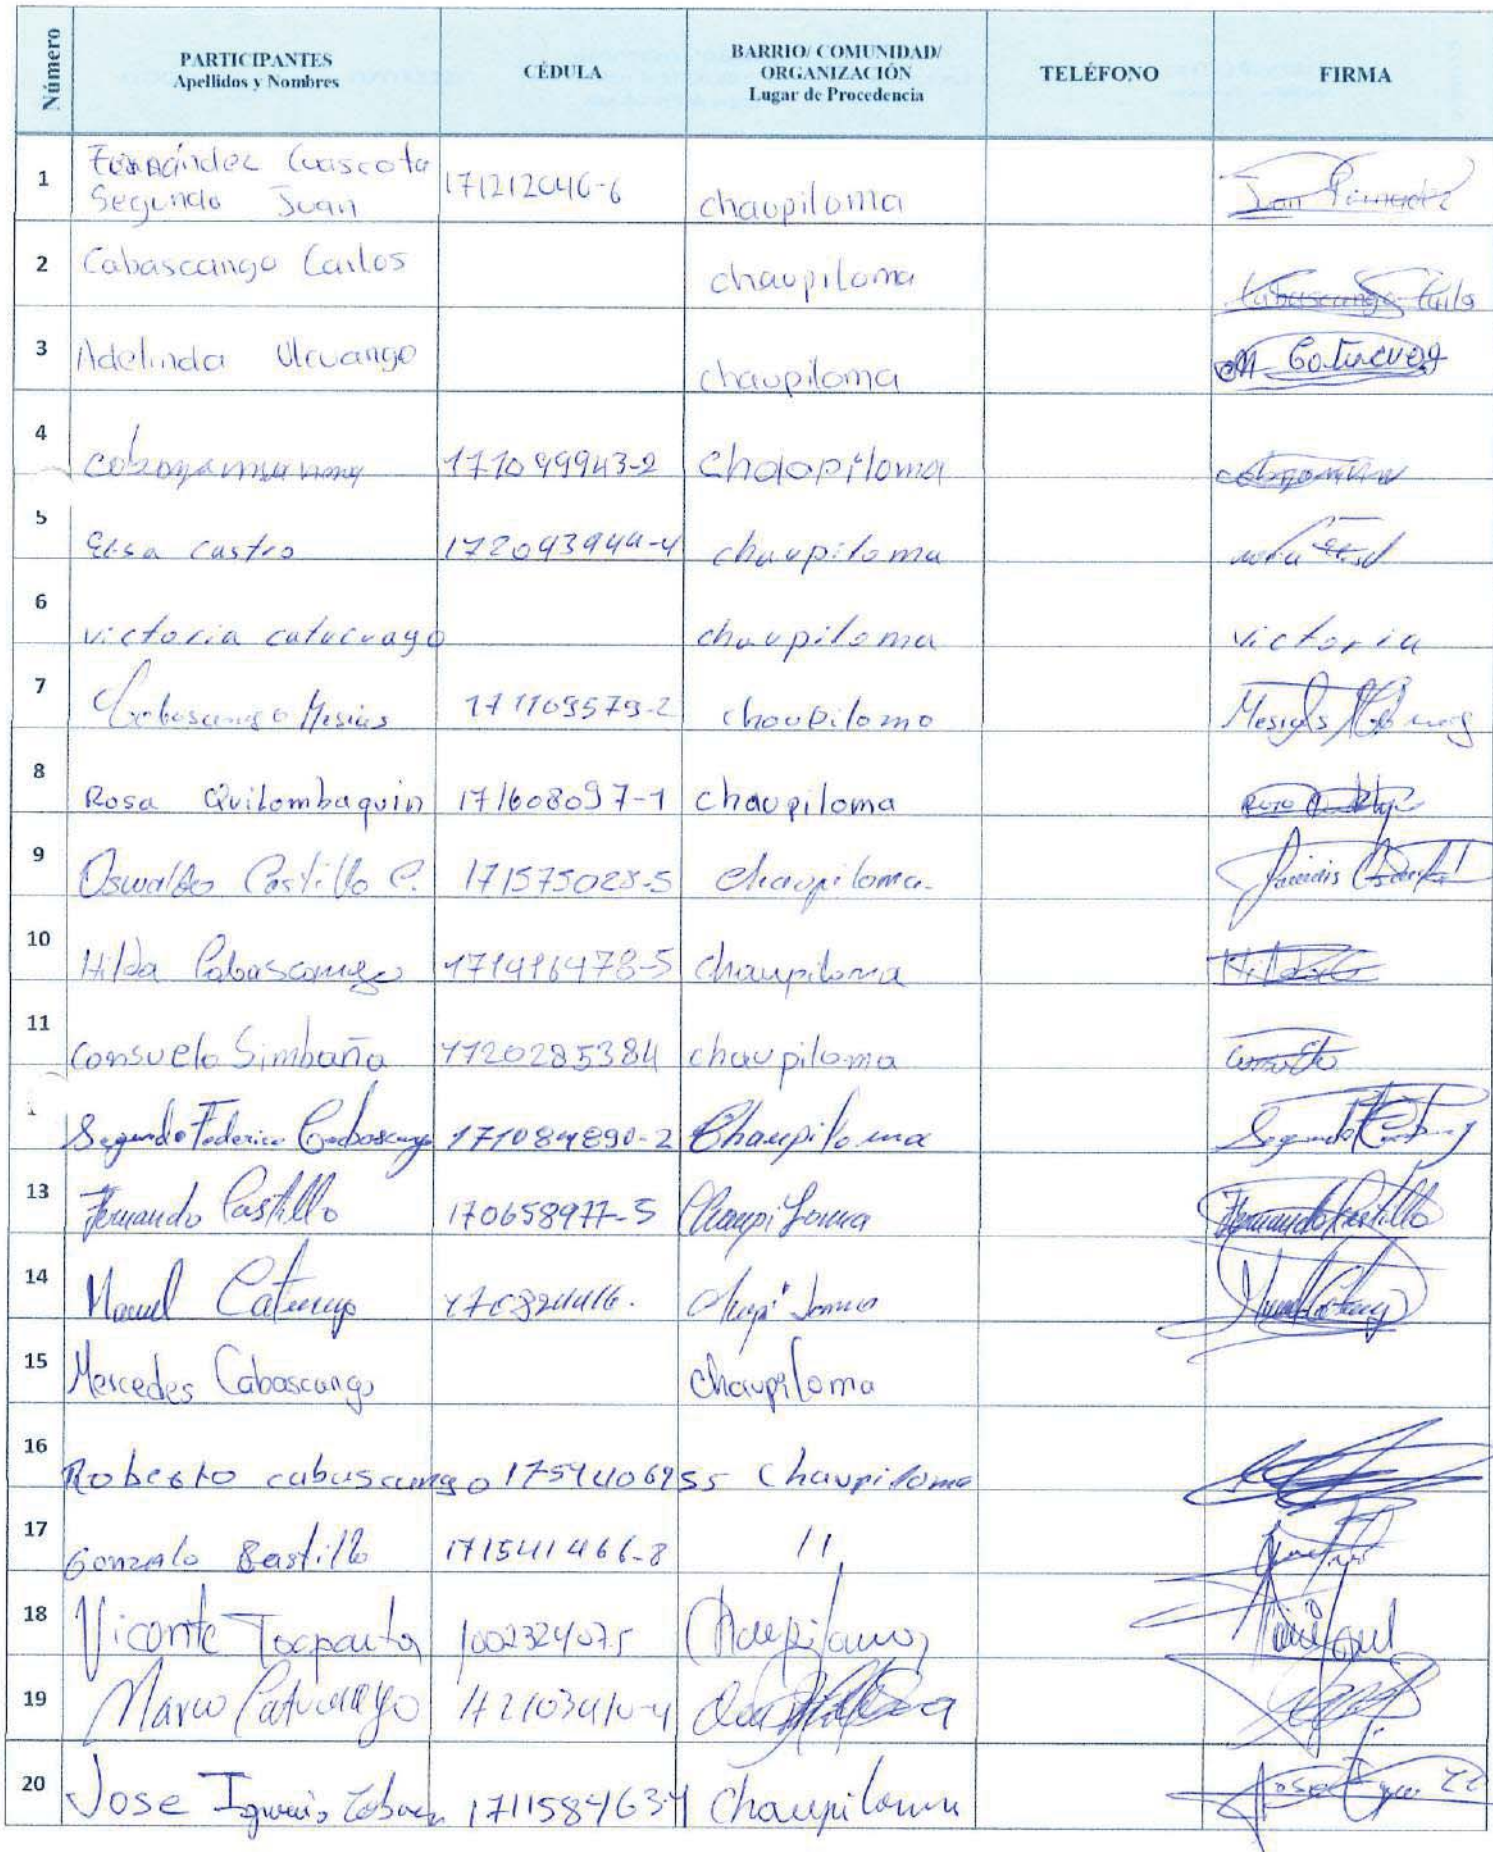 Número
PARTICIPANTES
Apellidos y Nombres
CÉDULA
BARRIO/ COMUNIDAD/
ORGANIZACIÓN
Lugar de Procedencia
TELÉFONO
FIRMA
1 Fernández Cuascota
Segundo Juan 171212046-6 chaupiloma Juan Fernandez
2 Cabascango Carlos chaupiloma Cabascango Carlos
3 Adelinda Ulcuango chaupiloma
4 171099943-2 Chaopiloma
5 Elsa castro 172093944-4 chaupiloma
6 victoria catucuago chaupiloma victoria
7 Cabascango Mesias 171109579-2 choupilomo Mesias
8 Rosa Quilombaquin 171608097-1 chaupiloma
9 Oswaldo Castillo C. 171575028-5 chaupiloma.
10 Hilda Cabascango 171416478-5 chaupiloma Hilda
11 Consuelo Simbaña 1720285384 chaupiloma Consuelo
Segundo Federico Cabascango 171084890-2 Chaupiloma Segundo
13 Fernando Castillo 170658977-5 Chaupiloma Fernando Castillo
14 Manuel Catucuago
15 Mercedes Cabascango Chaupiloma
16 Roberto cabascango Chaupiloma
17 Gonzalo Castillo 171541466-8 11
18 Vicente 100232407-5
19 Marco Catucuago
20 Jose Ignacio 171158463-4 Chaupiloma